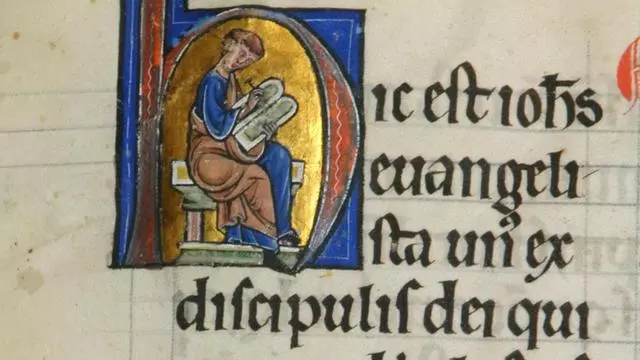 Hic est ioh̅s
euangeli-
sta un⁹ ex
discipulis dei qui